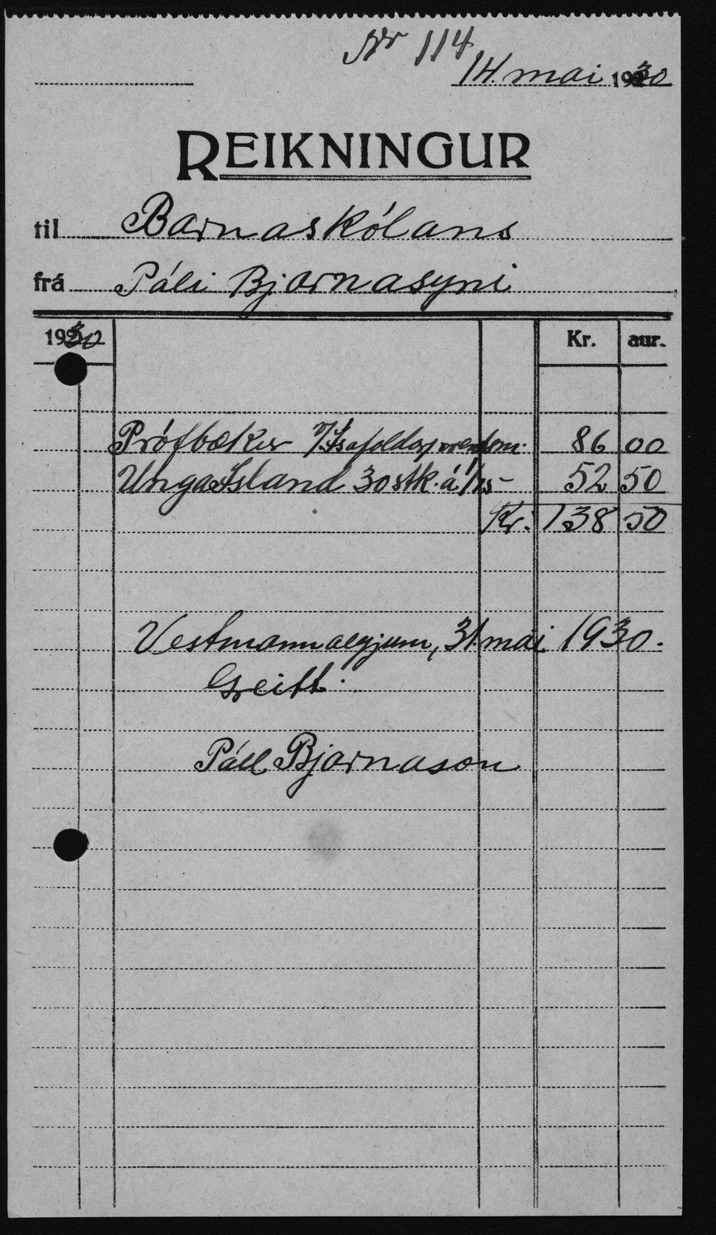 Nr 114
14. mai 1930
REIKNINGUR
til Barnaskólans
frá Páli Bjarnasyni
1930 Kr. aur.
Prófbækur Ísafoldarprentsm. 86 00
Unga Ísland 30 stk. á 1/75 52 50
Kr. 138 50
Vestmannaeyjum, 31. mai 1930.
Greitt.
Páll Bjarnason